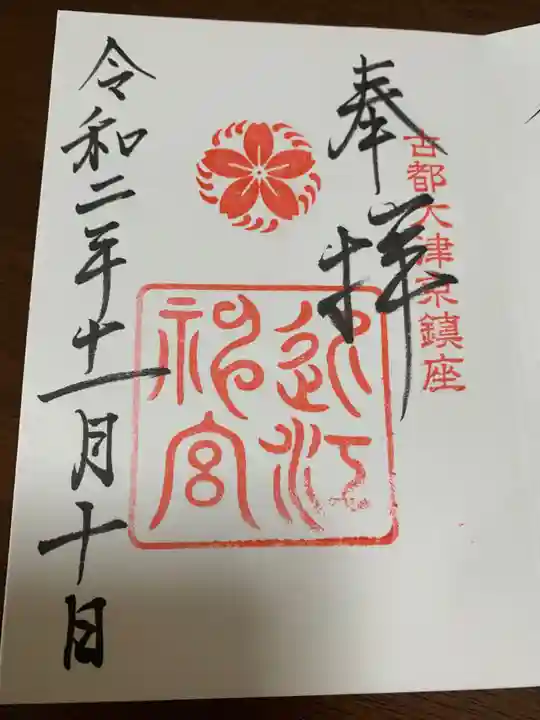 古都大津京鎮座
奉拝
近江神宮
令和二年十一月十日